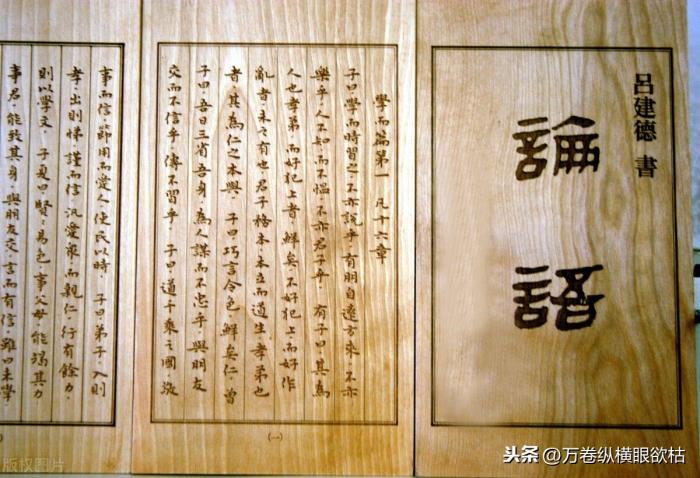 呂建德 書
論語
學而篇第一 凡十六章
子曰．學而時習之．不亦說乎．有朋自遠方來．不亦
樂乎．人不知而不慍．不亦君子乎． 有子曰．其為
人也孝弟．而好犯上者．鮮矣．不好犯上．而好作
亂者．未之有也．君子務本．本立而道生．孝弟也
者．其為仁之本與． 子曰．巧言令色．鮮矣仁． 曾
子曰．吾日三省吾身．為人謀而不忠乎．與朋友
交而不信乎．傳不習乎． 子曰．道千乘之國．敬
(一)
事而信．節用而愛人．使民以時． 子曰．弟子．入則
孝．出則悌．謹而信．汎愛眾．而親仁．行有餘力．
則以學文． 子夏曰．賢賢易色．事父母．能竭其力．
事君．能致其身．與朋友交．言而有信．雖曰未學
版权图片
头条 @万卷纵横眼欲枯